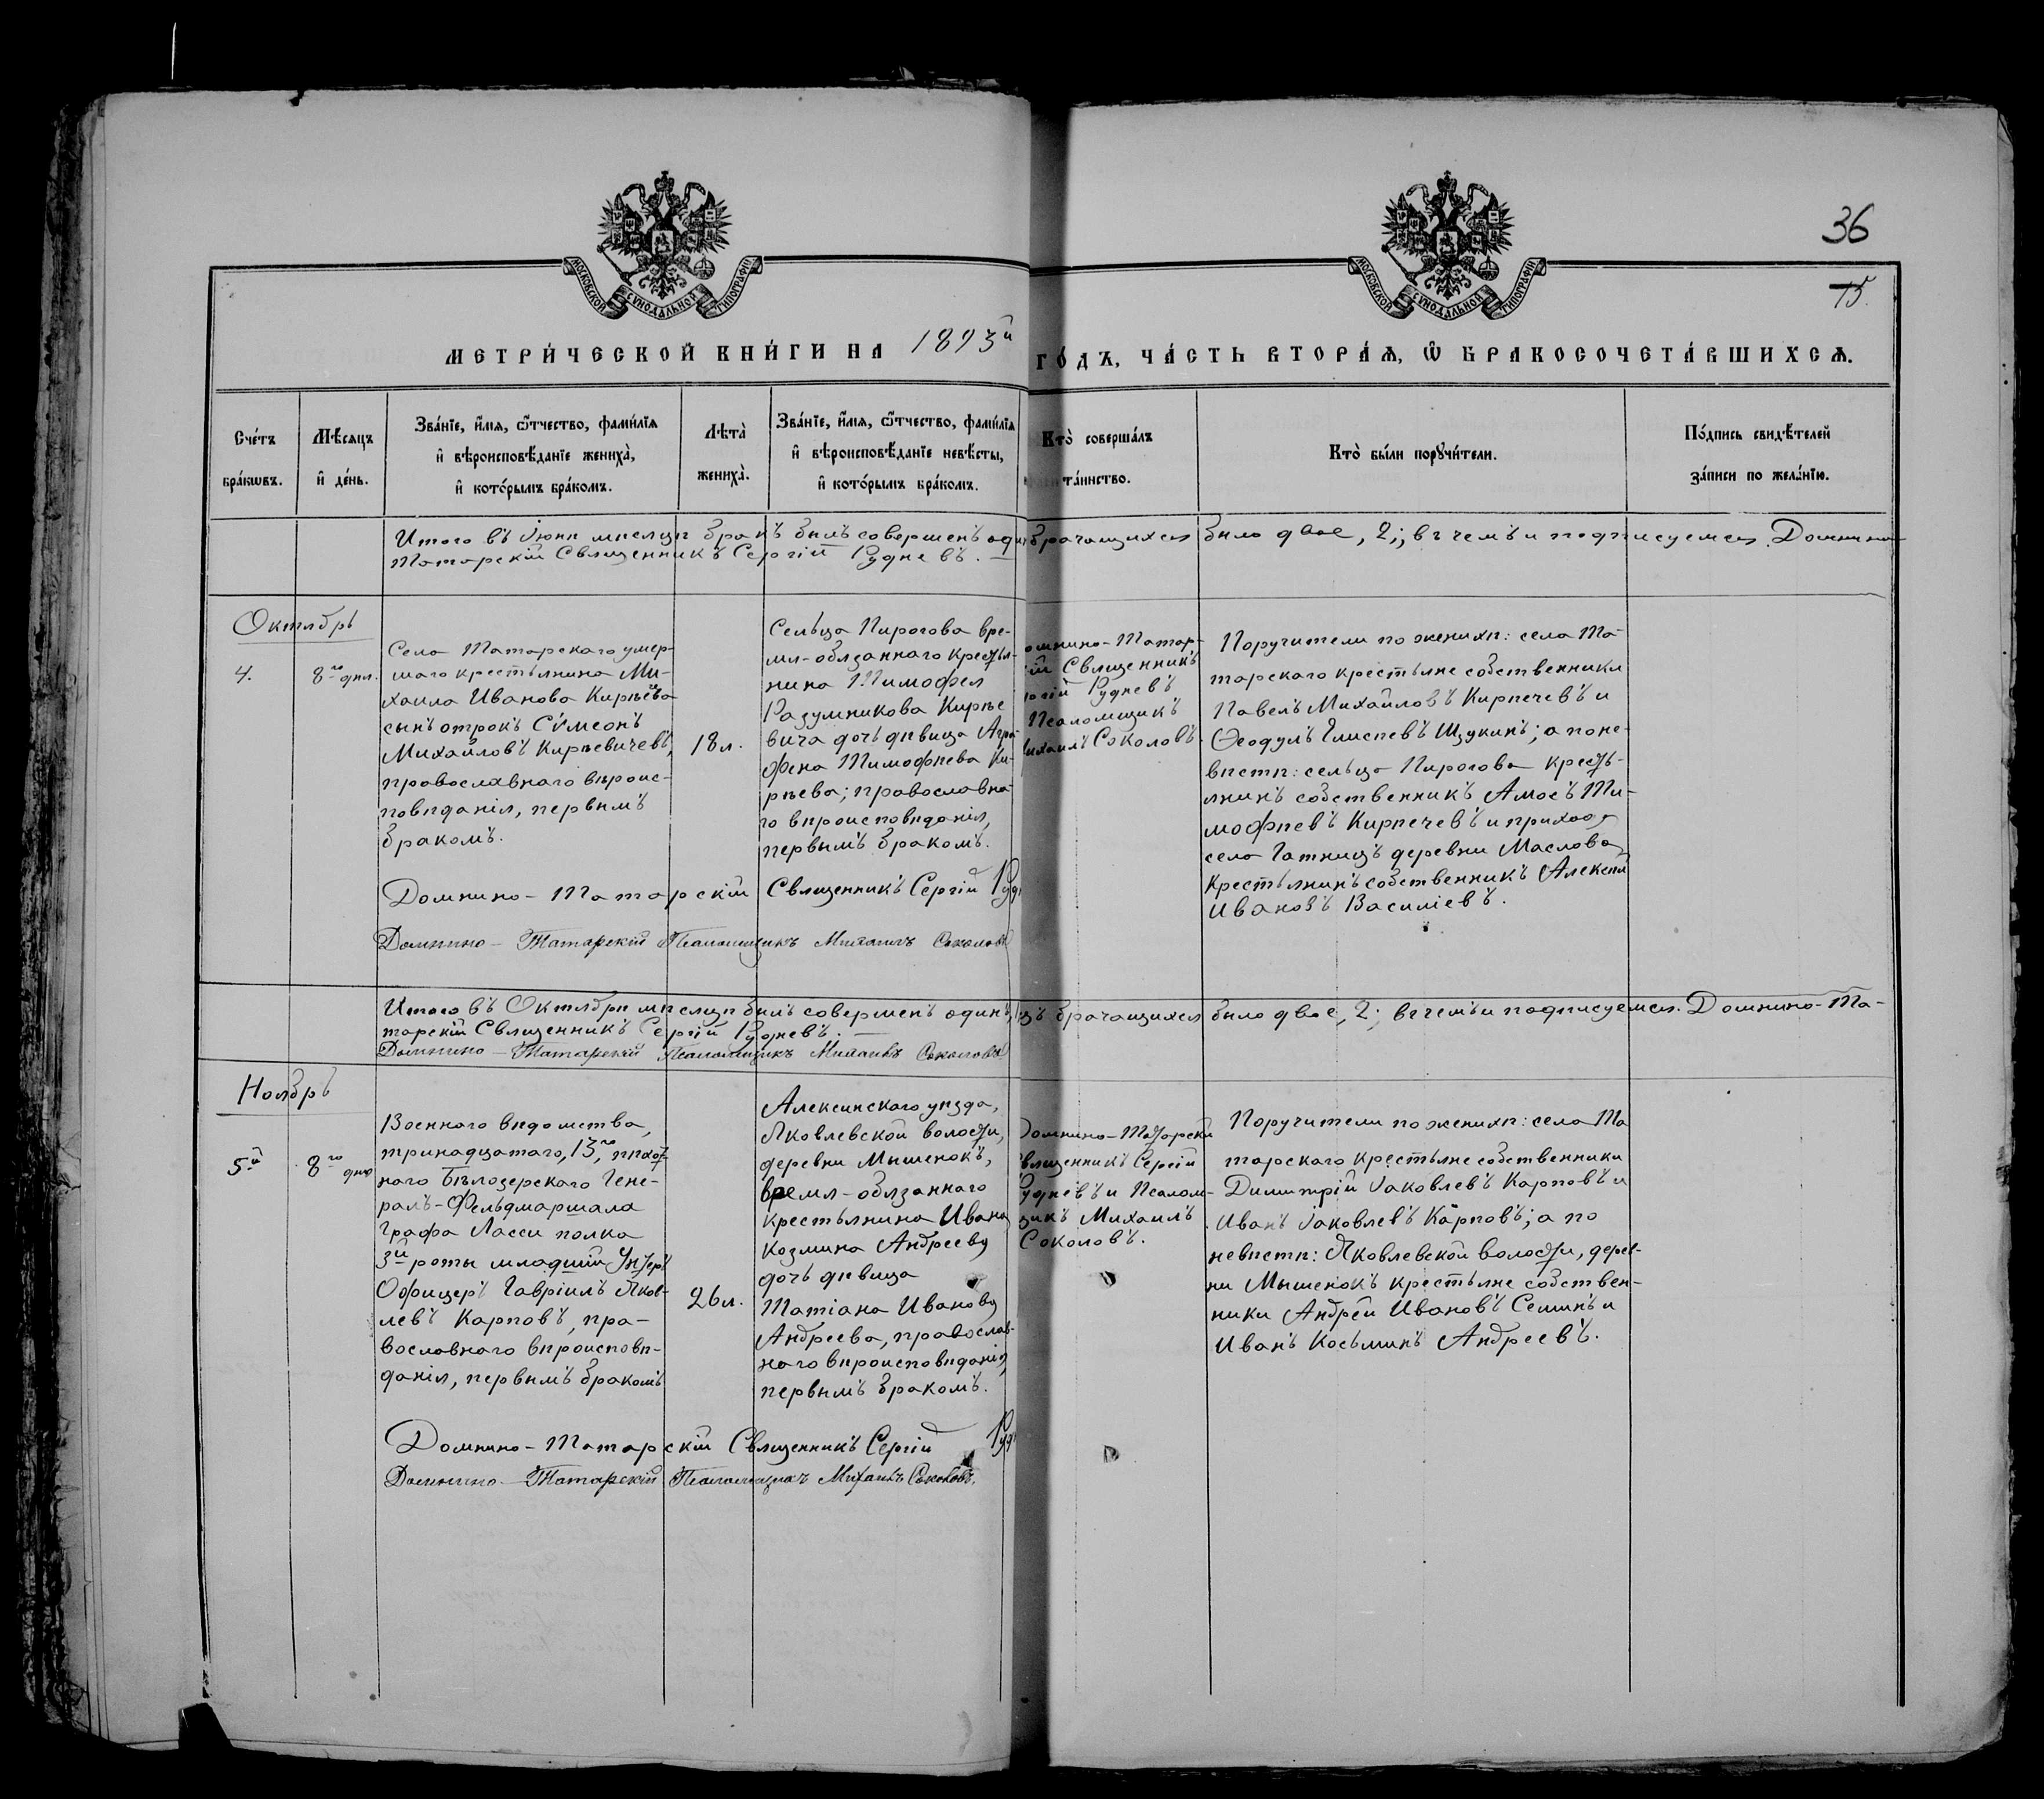 36
15.
МОСКОВСКОЙ СѴНОДАЛЬНОЙ ТИПОГРАФІИ
МОСКОВСКОЙ СѴНОДАЛЬНОЙ ТИПОГРАФІИ
МЕТРИ́ЧЕСКОЙ КНИ́ГИ НА 1873й ГО́ДЪ, ЧА́СТЬ ВТОРА́Я, Ѡ БРАКОСОЧЕТА́ВШИХСЯ.
Сче́тъ
бра́кѡвъ.
Мѣ́сяцъ
и҆ де́нь.
Зва́нїе, и҆́мя, ѻ҆́тчество, фами́лїя
и҆ вѣроисповѣ́данїе жениха̀,
и҆ кото́рымъ бра́комъ.
Лѣта̀
жениха̀.
Зва́нїе, и҆́мя, ѻ҆́тчество, фами́лїя
и҆ вѣроисповѣ́данїе невѣ́сты,
и҆ кото́рымъ бра́комъ.
Кто̀ соверша́лъ
та́инство.
Кто̀ бы́ли порꙋчи́тели.
По́дпись свидѣ́телей
за́писи по жела́нїю.
Итого въ Іюнѣ мѣсяцѣ бракъ былъ совершенъ оди брачащихся было двое, 2; въ чемъ и подписуемся. Домнино-
Татарскій Священникъ Сергій Рудневъ.
Октябрь
4.
8го дня.
Села Татарскаго умер-
шаго крестьянина Ми-
хаила Иванова Кирѣева
сынъ отрокъ Сѵмеонъ
Михайловъ Кирѣевичевъ,
православнаго вѣроис-
повѣданія, первымъ
бракомъ.
18 л.
Сельца Пирогова вре-
мя-обязаннаго крестья-
нина Тимофея
Разумникова Кирѣе
вича дочь дѣвица Агра-
фена Тимофѣева Ки-
рѣева; православна-
го вѣроисповѣданія,
первымъ бракомъ.
омнино-Татар-
ій Священникъ
ргій Рудневъ
Псаломщикъ
ихаилъ Соколовъ.
Поручители по женихѣ: села Та-
тарскаго крестьяне собственники
Павелъ Михайловъ Кирпечевъ и
Ѳеодулъ Елисѣевъ Щукинъ; а по не-
вѣстѣ: сельца Пирогова кресть-
янинъ собственникъ Амосъ Ти-
мофѣевъ Кирпечевъ и прихода
села Гатницъ деревни Маслова
крестьянинъ собственникъ Алексѣй
Ивановъ Василіевъ.
Домнино-Татарскій Священникъ Сергій Руд
Домнино-Татарскій Псаломщикъ Михаилъ Соколовъ
Итого въ Октябрѣ мѣсяцѣ былъ совершенъ одинъ, брачащихся было двое, 2; въ чемъ и подписуемся. Домнино-Та-
тарскій Священникъ Сергій Рудневъ.
Домнино-Татарскій Псаломщикъ Михаилъ Соколовъ
Ноябрь
5й
8го дня
Военнаго вѣдомства,
тринадцатаго, 13го, пѣхот-
наго Бѣлозерскаго Гене-
ралъ-Фельдмаршала
Графа Ласси полка
3й роты младшій Унтеръ
Офицеръ Гавріилъ Яков-
левъ Карповъ, пра-
вославнаго вѣроисповѣ-
данія, первымъ бракомъ
26 л.
Алексинскаго уѣзда,
Яковлевской волости,
деревни Мышенокъ,
время-обязаннаго
крестьянина Ивана
Козмина Андреева
дочь дѣвица
Татіана Иванова
Андреева, православ-
наго вѣроисповѣданія,
первымъ бракомъ.
Домнино-Татарскій
Священникъ Сергій
Рудневъ и Псалом-
щикъ Михаилъ
Соколовъ.
Поручители по женихѣ: села Та
тарскаго крестьяне собственники
Димитрій Іаковлевъ Карповъ и
Иванъ Іаковлевъ Карповъ; а по
невѣстѣ: Яковлевской волости, дерев-
ни Мышенокъ крестьяне собствен-
ники Андрей Ивановъ Семинъ и
Иванъ Косьминъ Андреевъ.
Домнино-Татарскій Священникъ Сергій Руд
Домнино-Татарскій Псаломщикъ Михаилъ Соколовъ.